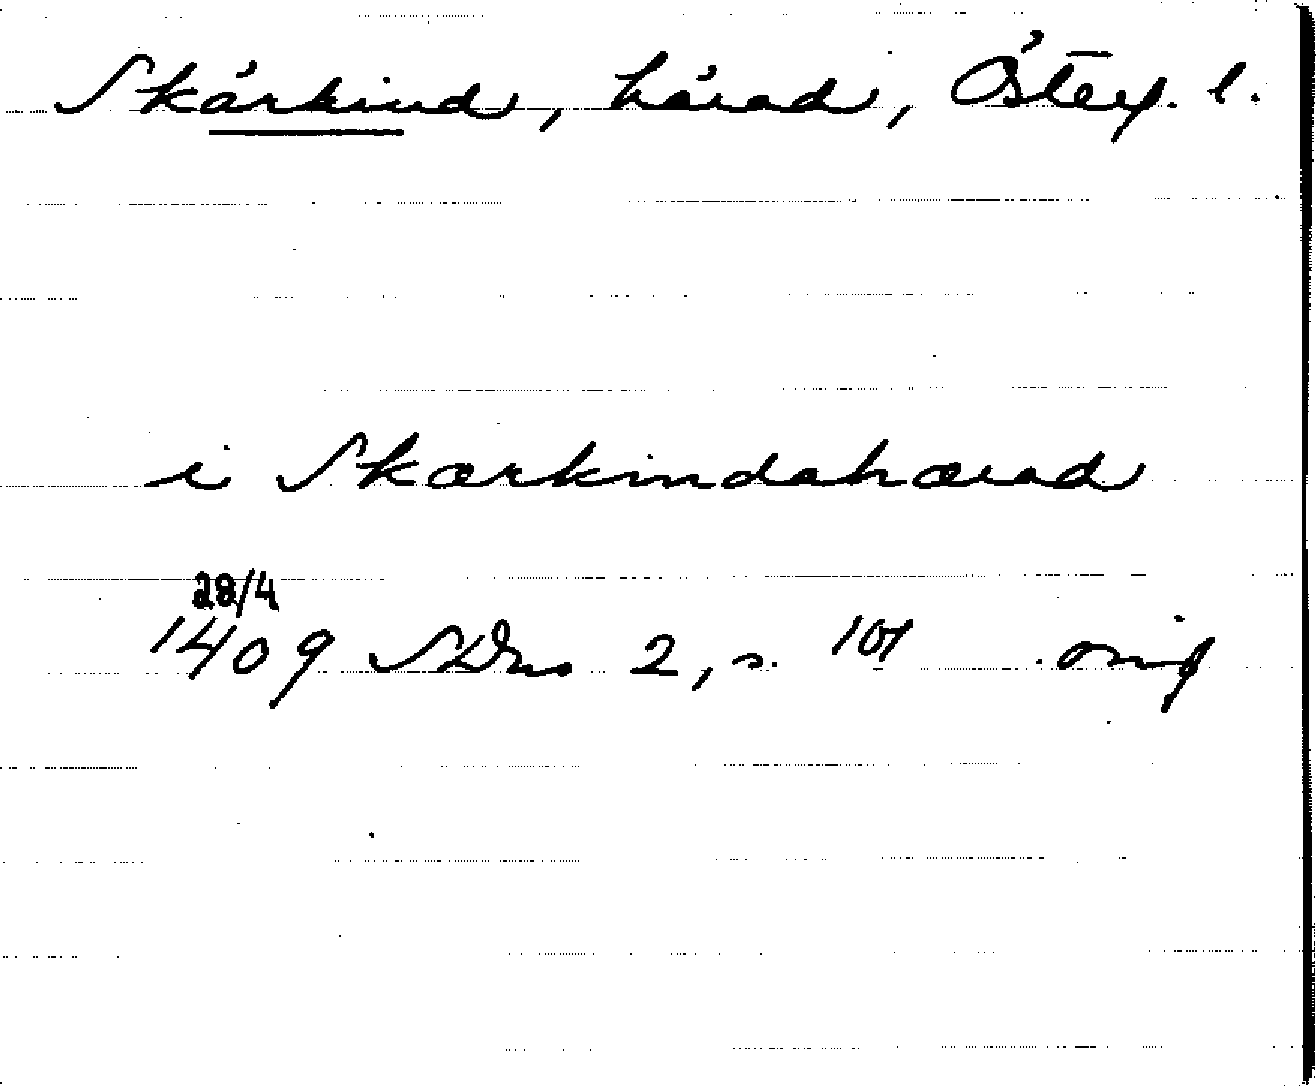 Skärkind, härad, Österg. l.
i Skærkindahærad
28/4
1409 SDns 2, s. 101 orig